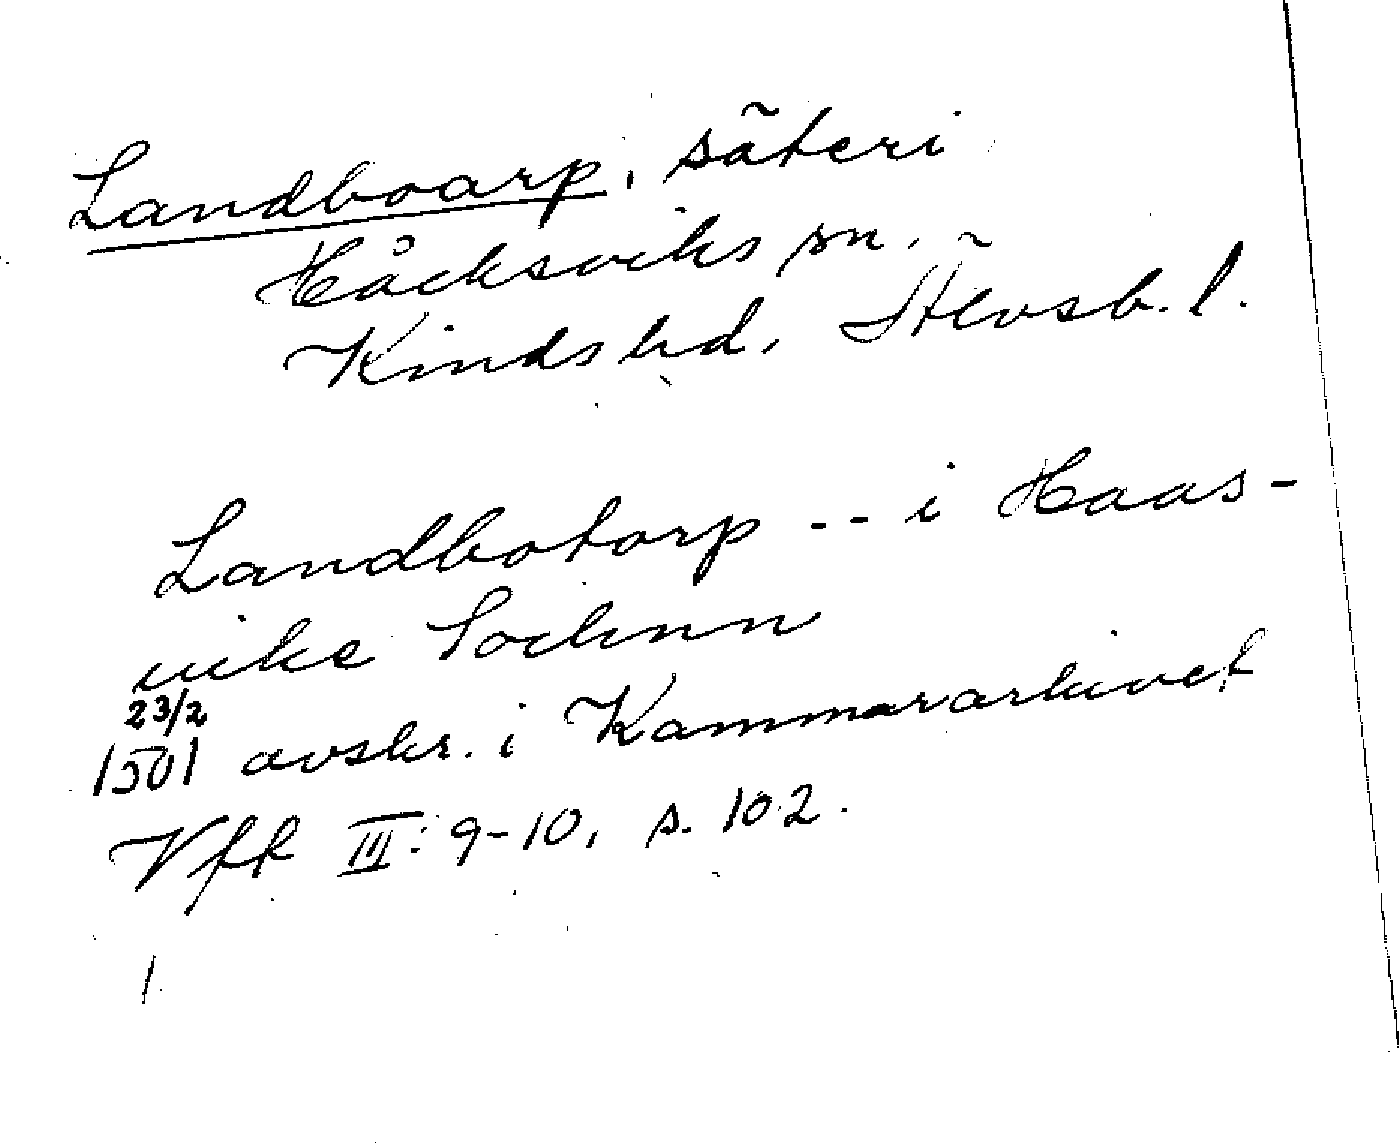 Landboarp, säteri
Håcksviks sn.
Kinds hd, Älvsb. l.
Landbotorp -- i Haas-
uike Sochnn
23/2
1501 avskr. i Kammararkivet
Vffk III: 9-10, s. 102.